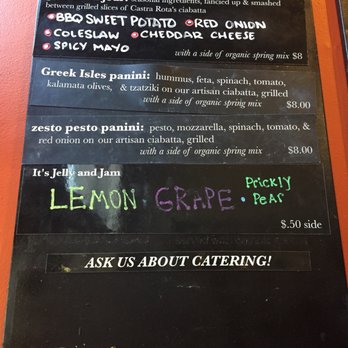 seasonal ingredients, fancied up & smashed
between grilled slices of Castra Rota's ciabatta
• BBQ SWEET POTATO • RED ONION
• COLESLAW • CHEDDAR CHEESE
• SPICY MAYO
with a side of organic spring mix $8
Greek Isles panini: hummus, feta, spinach, tomato,
kalamata olives, & tzatziki on our artisan ciabatta, grilled
with a side of organic spring mix $8.00
zesto pesto panini: pesto, mozzarella, spinach, tomato, &
red onion on our artisan ciabatta, grilled
with a side of organic spring mix $8.00
It's Jelly and Jam
LEMON • GRAPE • Prickly
Pear
$.50 side
ASK US ABOUT CATERING!